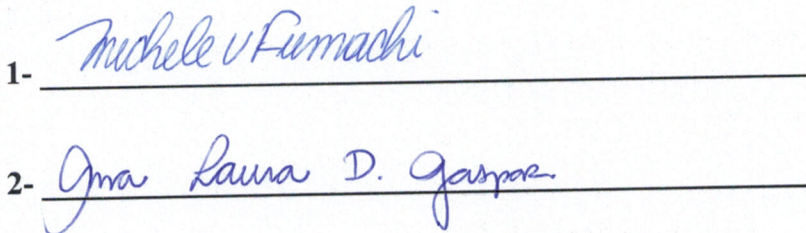 1- Michele V Fumachi
2- Ana Laura D. Gaspar